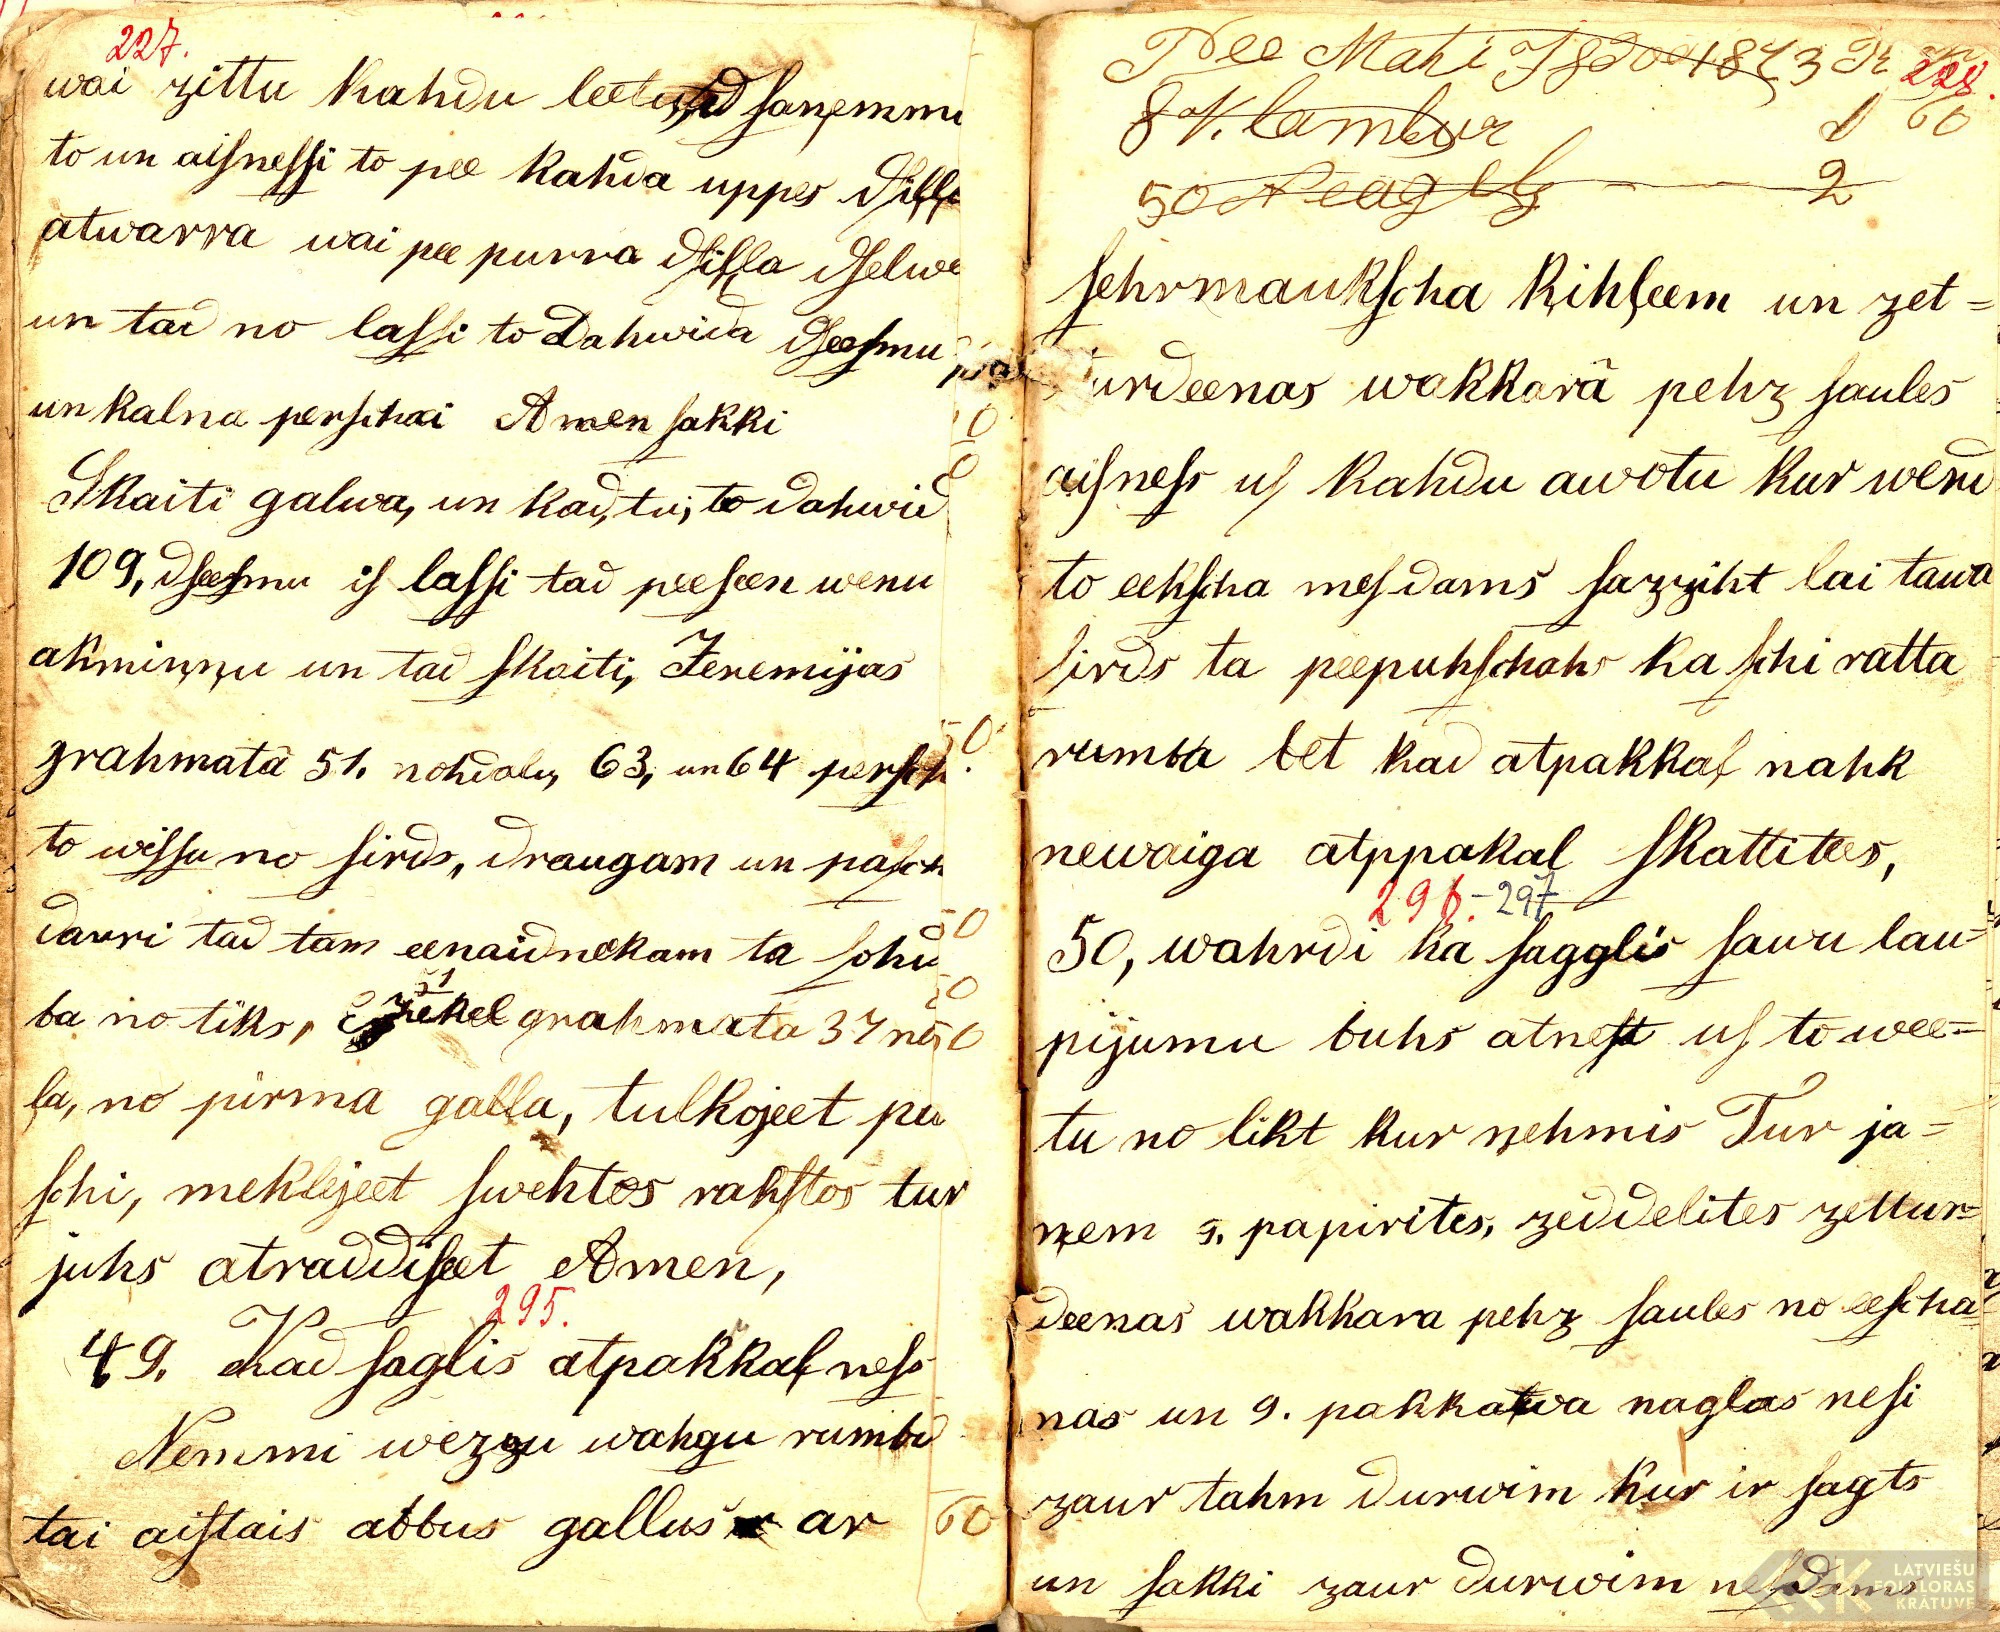 227.
wai zittu kahdu leetu, ud sanemmu
to un aisnessi to pee kahda uppes dsilla
atwarra wai pee purra dsilla dselwe
un tad no lassi to Dahwida dseesmu
un kalna perschai Amen sakki
Skaiti galwa, un kad, tu, to dahwid
109, dseesmu is lassi tad peeseen wenu
akminņu un tad skaiti, Jeremijas
grahmatā 51. nohdaļu, 63, un 64 persch
to wissu no sirds, draugam un pasch
darri tad tam eenaidnekam ta sohd
ba no tiks, grahmata 37 no
ļa, no pirma galla, tulkojeet pa
schi, meklejeet swehtos rakstos tur
juhs atraddiseet Amen,
295.
49. Kad saglis atpakkaļ ness
Nemmi wezzu wahgu rumbu
tai aistais abbus gallus ar
228.
Pee Mahi 1873
8 Klambur 1 60
50 Neageļ 2
sehrmaukscha kihļeem un zet=
urdeenas wakkarā pehz saules
aisness us kahdu awotu kur wend
to eekscha mesdams sazziht lai tawa
sirds ta peepuhschahs ka schi ratta
rumba bet kad atpakkaļ nahk
newaiga atppakal skattitees,
296.-297
50, wahrdi ka sagglis sawu lau=
pijumu buhs atnest us to wee=
tu no likt kur ņehmis Tur ja=
ņem 9. papirites, zeddelites zettur=
deenas wakkara pehz saules no eescha=
nas un 9. pakkawa naglas nesi
zaur tahm durwim kur ir sagts
un sakki zaur durwim nesdams
LATVIEŠU
FOLKLORAS
KRĀTUVE